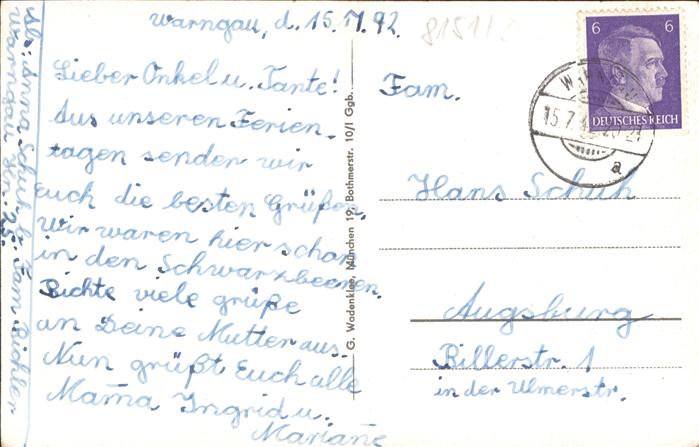 Warngau, d. 15.VII.42.
Lieber Onkel u. Tante!
Aus unseren Ferien-
tagen senden wir
euch die besten Grüßen,
Wir waren hier schon
in den Schwarzbeeren.
Richte viele grüße
an Deine Mutter aus.
Nun grüßt Euch alle
Mama Ingrid u.
Mariane
Abs: Anna Schuh b. Fam. Bichler
Warngau Hs. 25.
G. Wadenklee, München 19, Bothmerstr. 10/I Ggb.
8151/
6 6
DEUTSCHES REICH
15.7.
a
Fam.
Hans Schuh
Augsburg
Rillerstr. 1
in der Ulmerstr.